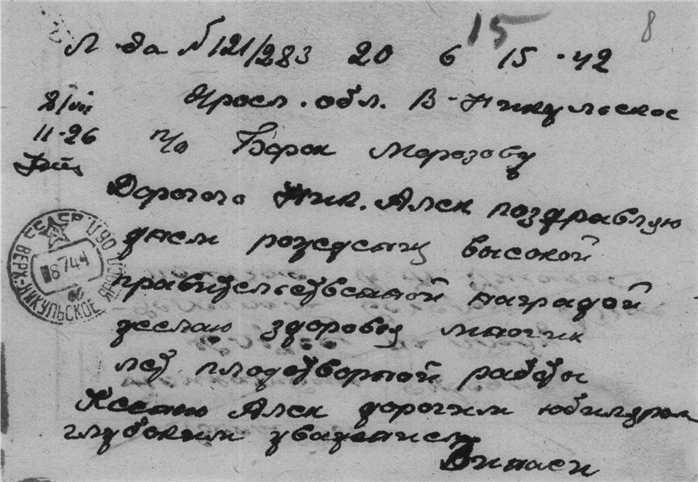 15 8
Л-да № 121/283 20 6 15-42
8/VII Яросл. обл. В-Никульское
11-26 п/о Борок Морозову
Дорогого Ник. Алек поздравляю
днем рожденья высокой
правительственной наградой
желаю здоровья многих
лет плодотворной работы
Ксению Алек дорогим юбиляром
глубоким уважением
ВЕРХ-НИКУЛЬСКОЕ
8744